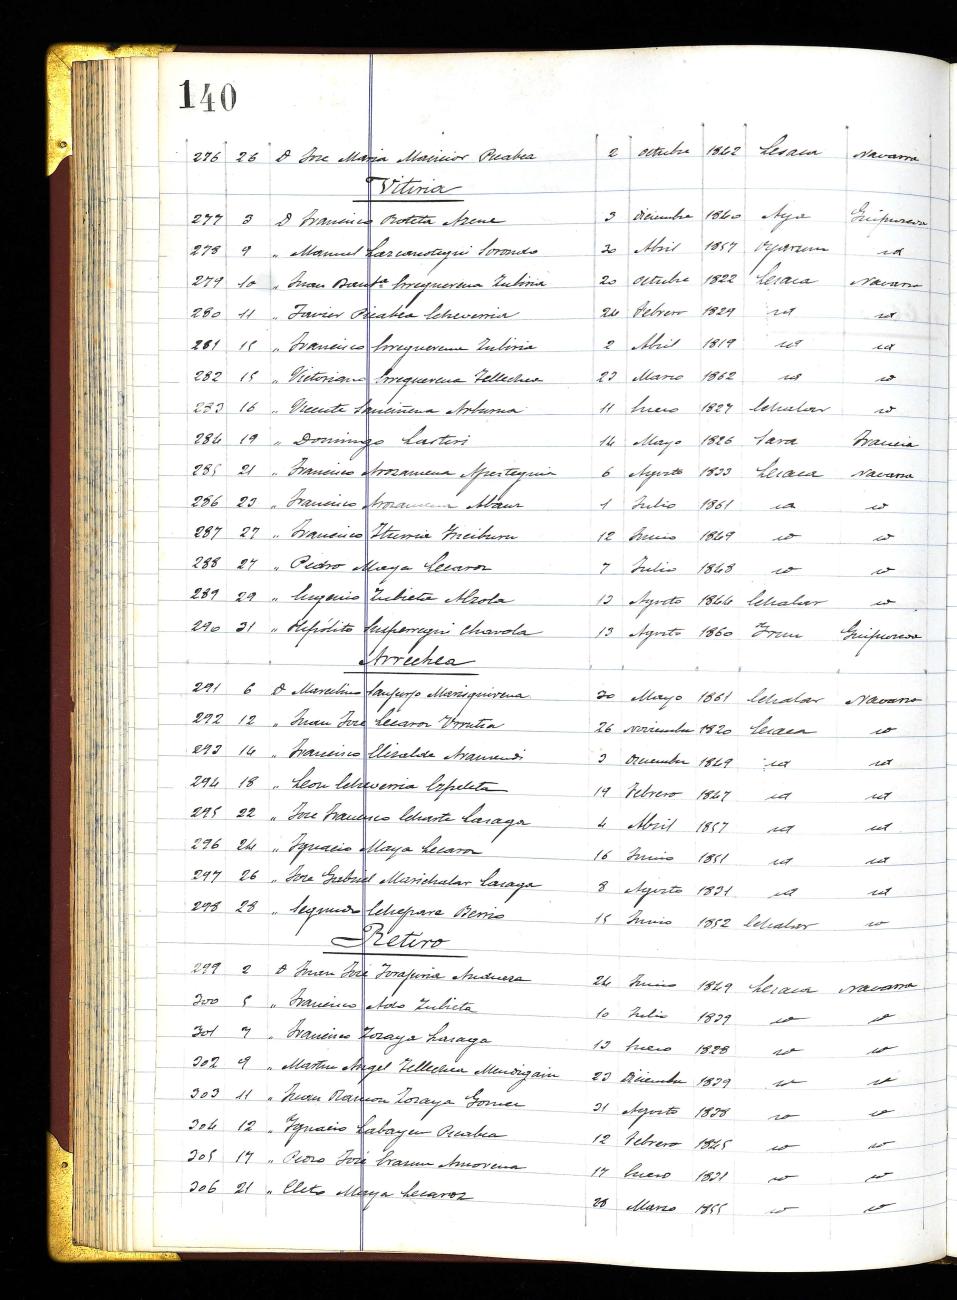 140
276 26 D Jose Maria Maisior Picabea 2 octubre 1842 Lesaca Navarra
Vitiria
277 3 D Francisco Roteta Azcue 3 Diciembre 1840 Aya Guipuzcoa
278 9 " Manuel Lazcanotegui Sorondo 30 Abril 1857 Oyarzun id
279 10 " Juan Bauta Irreguerena Zubiria 20 octubre 1822 Lesaca Navarra
280 11 " Javier Picabea Echeverria 24 Febrero 1829 id id
281 15 " Francisco Irreguerena Zubiria 2 Abril 1819 id id
282 15 " Victoriano Irreguerena Tellechea 23 Marzo 1862 id id
283 16 " Vicente Sanciñena Arburua 11 Enero 1827 Echalar id
284 19 " Domingo 14 Mayo 1826 Sara Francia
285 21 " Francisco Arozamena Apesteguia 6 Agosto 1833 Lesaca Navarra
286 23 " Francisco Arozamena 1 Julio 1861 id id
287 27 " Francisco Iturria 12 Junio 1849 id id
288 27 " Pedro Maya Lecaroz 7 Julio 1848 id id
289 29 " Eugenio Zubieta Alzola 13 Agosto 1844 Echalar id
290 31 " Hipólito Susperregui Chavola 13 Agosto 1860 Irun Guipuzcoa
Arrechea
291 6 D Marcelino Sanjurjo Marisquirena 30 Mayo 1861 Echalar Navarra
292 12 " Juan José Lecaroz Urrutia 26 noviembre 1820 Lesaca id
293 14 " Francisco Elizalde Aramendi 3 Diciembre 1849 id id
294 18 " Leon Echeverria Ezpeleta 19 Febrero 1847 id id
295 22 " Jose Francisco Echarte Lasaga 4 Abril 1857 id id
296 24 " Ygnacio Maya Lecaroz 16 Junio 1851 id id
297 26 " Jose Gabriel Marichalar Lasaga 8 Agosto 1831 id id
298 28 " Segundo Echepare Berrio 15 Junio 1852 Echalar id
Retiro
299 2 D Juan José Andueza 24 Junio 1849 Lesaca Navarra
300 5 " Francisco Zubieta 10 Julio 1839 id id
301 7 " Francisco Zozaya Lasaga 13 Enero 1828 id id
302 9 " Martin Angel Tellechea Mendigain 23 Diciembre 1839 id id
303 11 " Juan Ramon Zozaya Gomez 31 Agosto 1838 id id
304 12 " Ygnacio Labayen Picabea 12 Febrero 1845 id id
305 17 " Pedro José Amorena 17 Enero 1831 id id
306 21 " Cleto Maya Lecaroz 28 Marzo 1855 id id